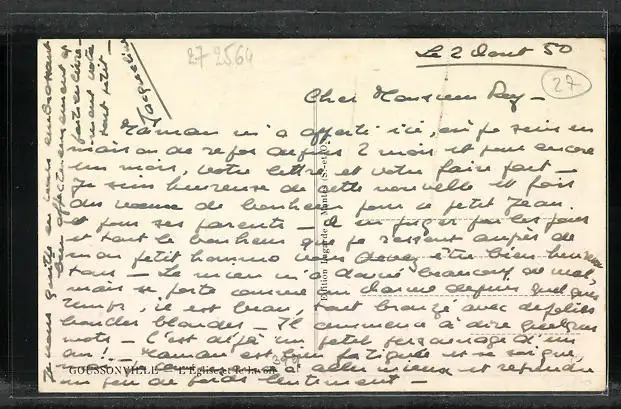 27 2564
Le 2 Aout 50
27
Cher Monsieur Rey –
Maman m'a apporté ici, où je suis en
maison de repos depuis 2 mois et pour encore
un mois, votre lettre et votre faire part –
Je suis heureuse de cette nouvelle et fais
des vœux de bonheur pour ce petit Jean.
et pour ses parents – à en juger par les joies
et tout le bonheur que je ressent auprès de
mon petit homme vous devez être bien heureux
tous – Le mien m'a donné beaucoup de mal,
mais se porte comme un charme depuis quelques
temps, il est beau, tout bronzé avec de jolies
boucles blondes – Il commence à dire quelques
mots – C'est déjà un petit personnage d'un
an! – Maman est bien fatiguée et se soigne,
à aller mieux et reprendre
un peu de poids lentement –
Je vous quitte en vous embrassant
bien affectueusement et
votre
tout petit –
Jacqueline
Edition Lagarde, Mantes (S.-et-O.)
GOUSSONVILLE – L'Église et le lavoir